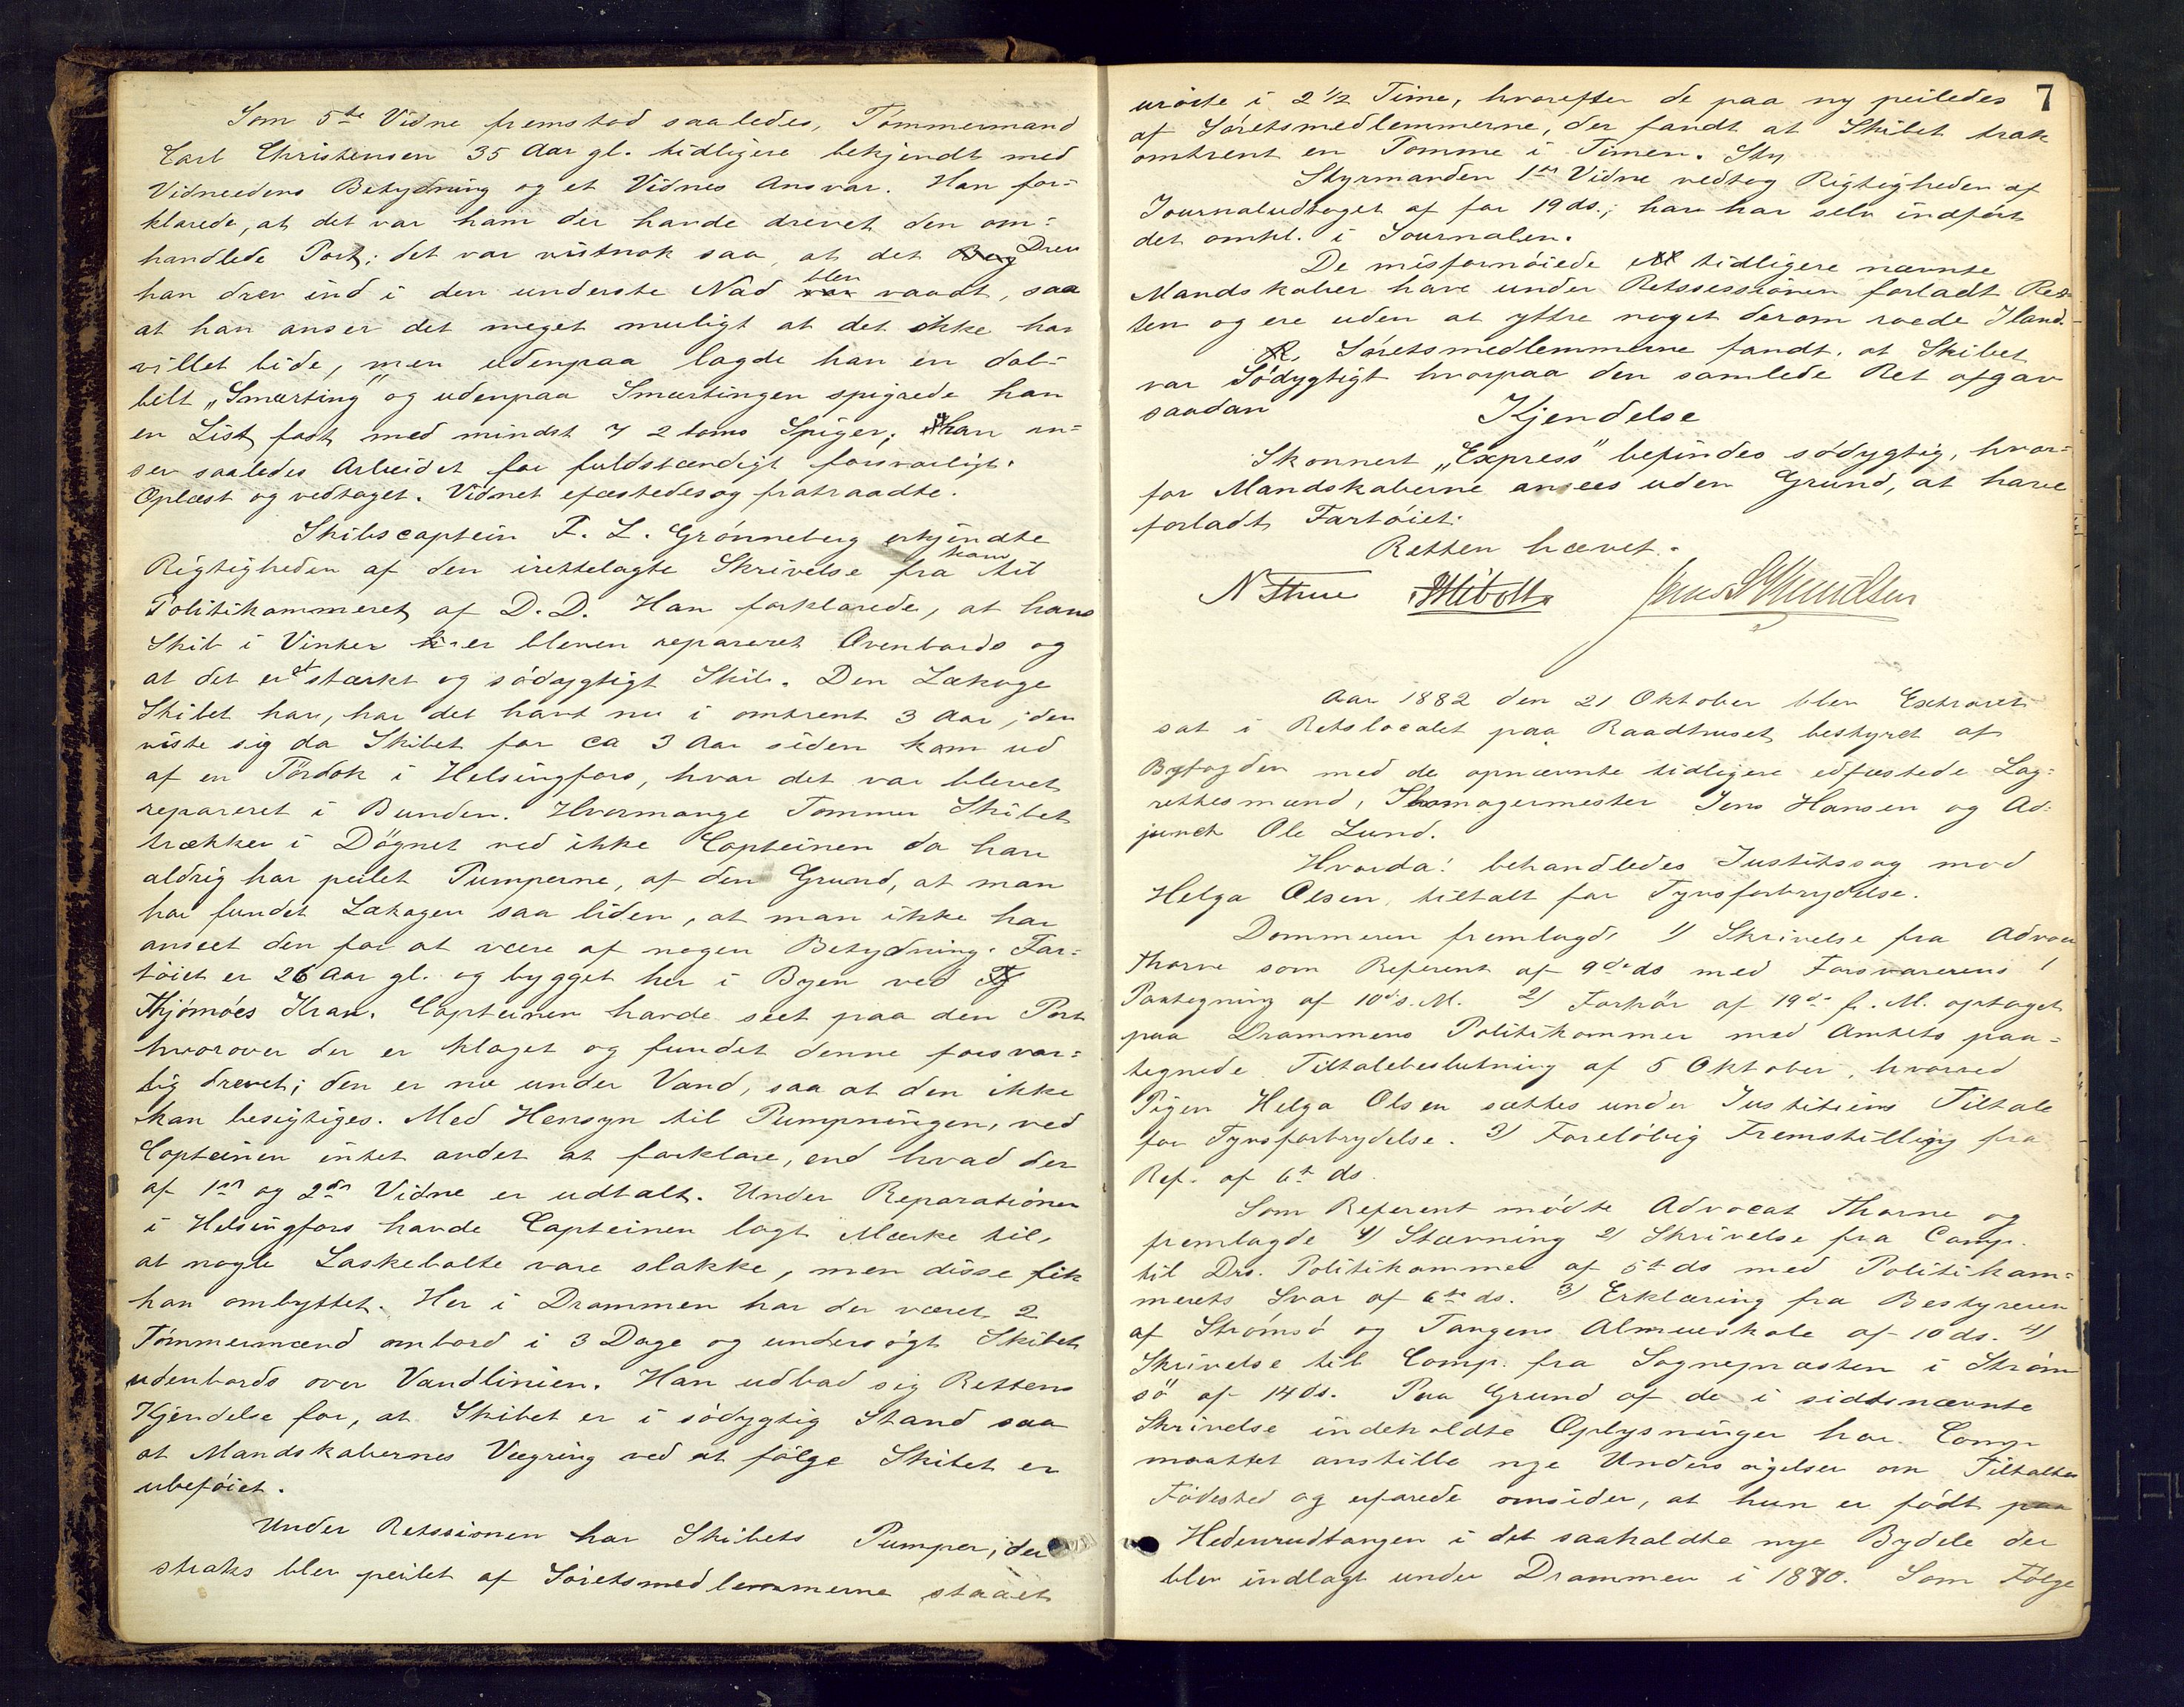 Som 5te Vidne fremstod saaledes, Tømmermand
Carl Christensen 35 Aar gl. tidligere bekjendt med
Vidneedens Betydning og et Vidnes Ansvar. Han for-
klarede, at det var ham der havde drevet den om-
handlede Port; det var vistnok saa, at det Drev
han drev ind i den underste Nad blev vaadt, saa
at han anser det meget muligt at det ikke har
villet bide, men udenpaa lagde han en dob-
belt „Smærting" og udenpaa Smærtingen spigrede han
en List fast med mindst 7 2 toms Spiger; han an-
ser saaledes Arbeidet for fuldstændigt forsvarligt.
Oplæst og vedtaget. Vidnet efæstedes og fratraadte.
Skibscaptein F. L. Grønneberg erkjendte
Rigtigheden af den irettelagte Skrivelse fra ham til
Politikammeret af D.D. Han forklarede, at hans
Skib i Vinter er bleven repareret Ovenbords og
at det er et stærkt og södygtigt Skib. Den Lækage
Skibet har, har det havt nu i omtrent 3 Aar; den
viste sig da Skibet for ca 3 Aar siden kom ud
af en Tördok i Helsingfors, hvor det var blevet
repareret i Bunden. Hvormange Tommer Skibet
trækker i Dögnet ved ikke Capteinen da han
aldrig har peilet Pumperne, af den Grund, at man
har fundet Lækagen saa liden, at man ikke har
anseet den for at være af nogen Betydning. Far-
töiet er 26 Aar gl. og bygget her i Byen ved
Thjömöes Kran. Capteinen havde seet paa den Port
hvorover der er klaget og fundet denne forsvar-
lig drevet; den er nu under Vand, saa at den ikke
kan besigtiges. Med Hensyn til Pumpningen, ved
Capteinen intet andet at forklare, end hvad der
af 1ste og 2det Vidne er udtalt. Under Reparationen
i Helsingfors havde Capteinen lagt Mærke til,
at nogle Laskebolte vare slakke, men disse fik
han ombyttet. Her i Drammen har der været 2
Tömmermænd ombord i 3 Dage og undersögt Skibet
udenbords over Vandlinien. Han udbad sig Rettens
Kjendelse for, at Skibet er i södygtig Stand saa
at Mandskabernes Vægring ved at fölge Skibet er
ubeföiet.
Under Retssionen har Skibets Pumper, der
straks blev peilet af Söretsmedlemmerne staaet
7
urörte i 2 1/2 Time, hvorefter de paa ny peiledes
af Söretsmedlemmerne, der fandt at Skibet trak
omtrent en Tomme i Timen. Sty
Styrmanden 1ste Vidne vedtog Rigtigheden af
Journaludtoget af for 19 ds.; han har selv indfört
det omhl. i Journalen.
De misfornöiede tidligere nævnte
Mandskaber have under Retssessionen forladt Ret-
ten og ere uden at yttre noget derom roede Iland.
Söretsmedlemmerne fandt, at Skibet
var Södygtigt hvorpaa den samlede Ret afgav
saadan
Kjendelse
Skonnert „Express" befindes södygtig, hvor-
for Mandskaberne ansees uden Grund, at have
forladt Fartöiet.
Retten hævet.
Aar 1882 den 21 Oktober blev Extraret
sat i Retslocalet paa Raadhuset bestyret af
Byfogden med de opnævnte tidligere edfæstede Lag-
rettesmænd, Skomagermester Jens Hansen og Ad-
junct Ole Lund.
Hvorda: behandledes Justitssag mod
Helga Olsen, tiltalt for Tyvsforbrydelse.
Dommeren fremlagde 1) Skrivelse fra Advocat
Thorne som Referent af 9de ds med Forsvarerens
Paategning af 10de s. M. 2) Forhör af 19de f. M. optaget
paa Drammens Politikammer med Amtets paa-
tegnede Tiltalebeslutning af 5 Oktober, hvorved
Pigen Helga Olsen sættes under Justitiens Tiltale
for Tyvsforbrydelse. 3) Forelöbig Fremstilling fra
Ref. af 6te ds.
Som Referent mödte Advocat Thorne og
fremlagde 1) Stævning 2) Skrivelse fra Comp.
til Drs. Politikammer af 5te ds med Politikam-
merets Svar af 6te ds. 3) Erklæring fra Bestyreren
af Strömsö og Tangens Almueskole af 10 ds. 4)
Skrivelse til Comp. fra Sognepræsten i Ström
sö af 14 ds. Paa Grund af de i sidstnævnte
Skrivelse indeholdte Oplysninger har Comp
maattet anstille nye Undersögelser om Tiltaltes
Födested og erfarede omsider, at hun er födt paa
Hedenrudtangen i det saakaldte nye Bydele der
blev indlagt under Drammen i 1870. Som Fölge